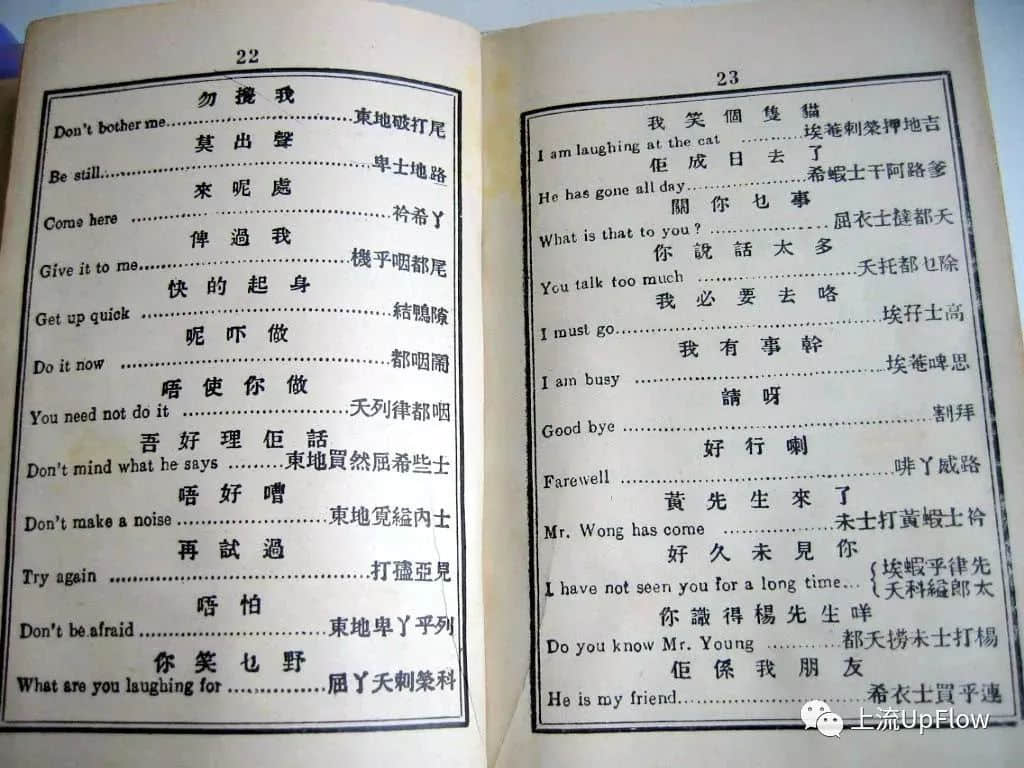 22
勿攪我
Don't bother me 東地破打尾
莫出聲
Be still 卑士地路
來呢處
Come here 衿希丫
俾過我
Give it to me 機乎咽都尾
快的起身
Get up quick 結鴨隙
呢吓做
Do it now 都咽鬧
唔使你做
You need not do it 天列律都咽
吾好理佢話
Don't mind what he says 東地買然屈希些士
唔好嘈
Don't make a noise 東地覓縊內士
再試過
Try again 打亞見
唔怕
Don't be afraid 東地卑丫乎列
你笑乜野
What are you laughing for 屈丫天剌榮科
23
我笑個隻貓
I am laughing at the cat 埃菴剌榮押地吉
佢成日去了
He has gone all day 希蝦士干阿路爹
關你乜事
What is that to you? 屈衣士撻都天
你說話太多
You talk too much 天托都乜除
我必要去咯
I must go 埃孖士高
我有事幹
I am busy 埃菴啤思
請呀
Good bye 割拜
好行喇
Farewell 啡丫威路
黃先生來了
Mr. Wong has come 未士打黃蝦士衿
好久未見你
I have not seen you for a long time 埃蝦乎律先
天科縊郎太
你識得楊先生咩
Do you know Mr. Young 都天撈未士打楊
佢係我朋友
He is my friend 希衣士買乎連
上流UpFlow